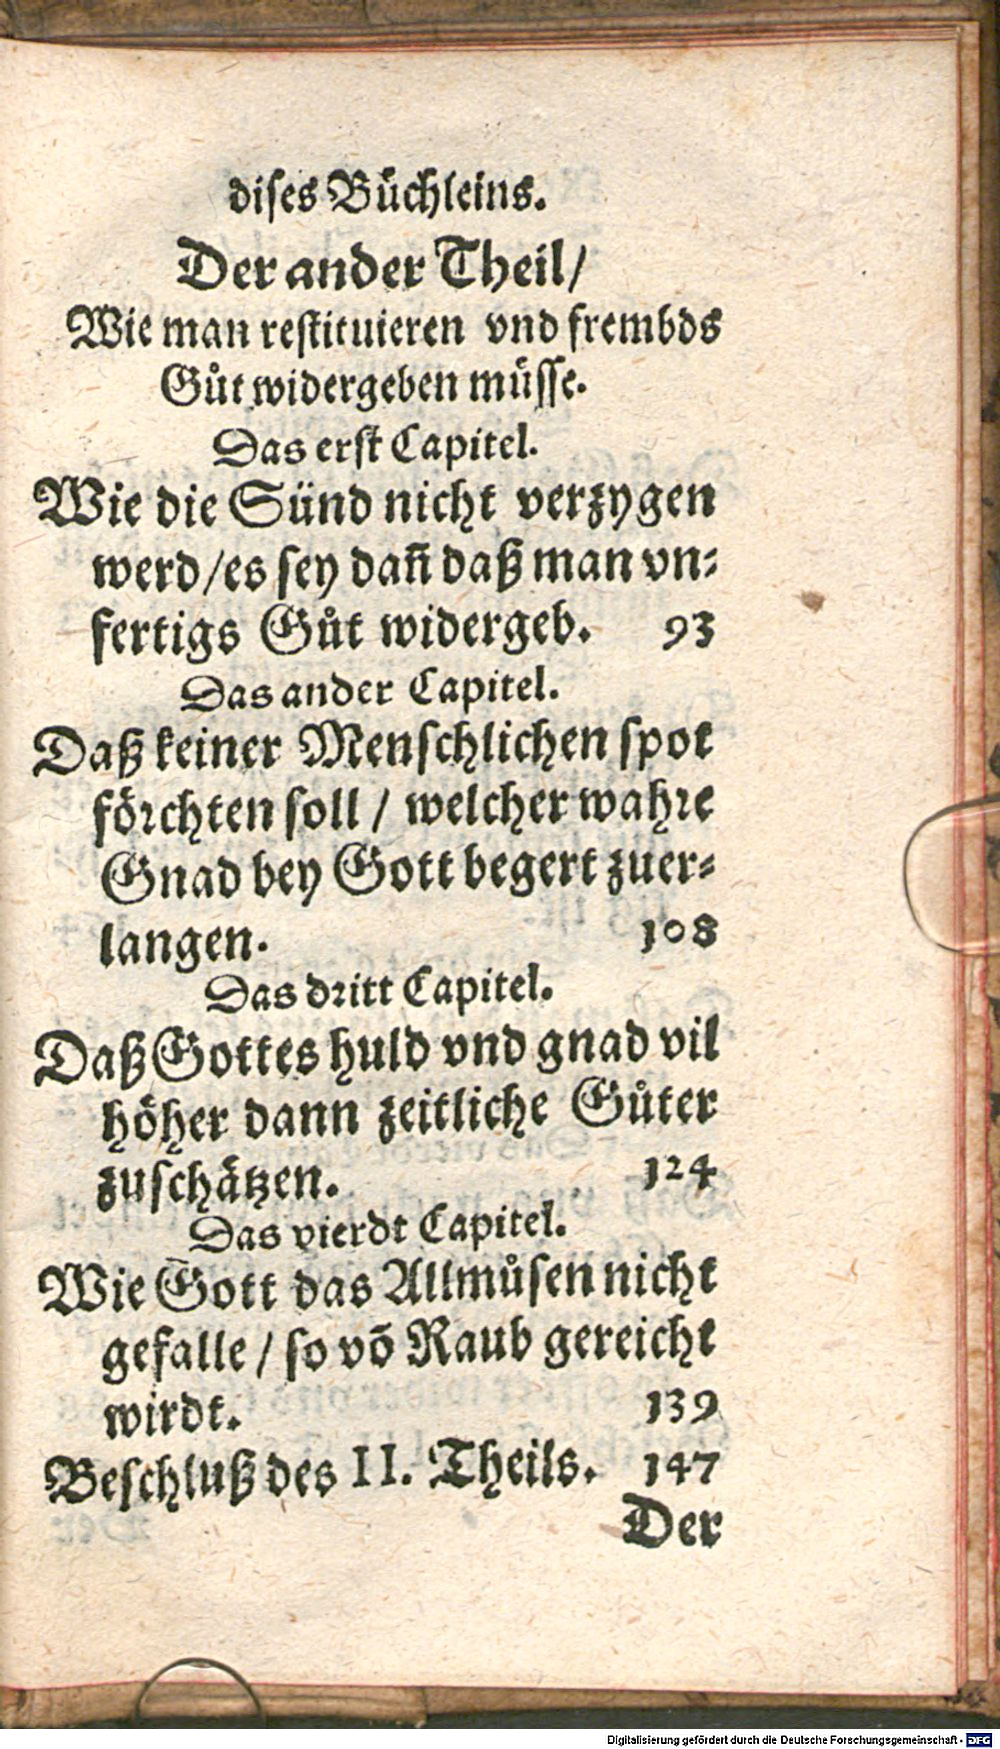 diſes Bůchleins.
Der ander Theil/
Wie man reſtituieren vnd frembds
Gůt widergeben müſſe.
Das erſt Capitel.
Wie die Sünd nicht verzygen
werd/es ſey dañ daß man vn⸗
fertigs Gůt widergeb. 93
Das ander Capitel.
Daß keiner Menſchlichen ſpot
förchten ſoll / welcher wahre
Gnad bey Gott begert zuer⸗
langen. 108
Das dritt Capitel.
Daß Gottes huld vnd gnad vil
höher dann zeitliche Gůter
zuſchätzen. 124
Das vierdt Capitel.
Wie Gott das Allmůſen nicht
gefalle / ſo võ Raub gereicht
wirdt. 139
Beſchluß des II. Theils. 147
Der
Digitalisierung gefördert durch die Deutsche Forschungsgemeinschaft - DFG